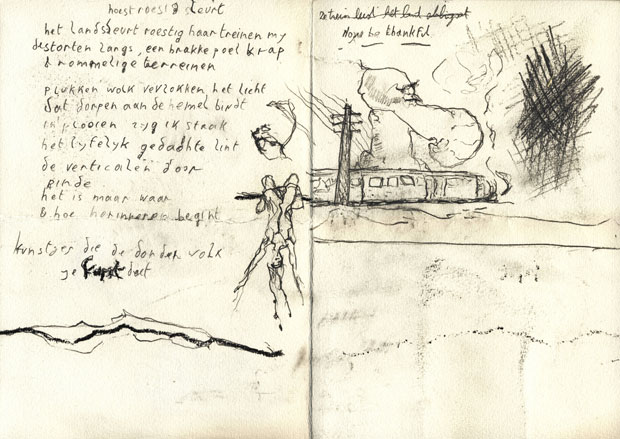 hoest roestig sleurt
het land sleurt roestig haar treinen my
de storten langs, een brakke poel krap
& rommelige terreinen
plukken wolk verlokken het licht
dat dorpen aan de hemel bindt
in plooien zyg ik staak
het lyfelyk gedachte lint
de verticalen door
einde
het is maar waar
& hoe herinneren begint
kunstjes die de donder wolk
je doet
de trein leest het land
Nope be thankful